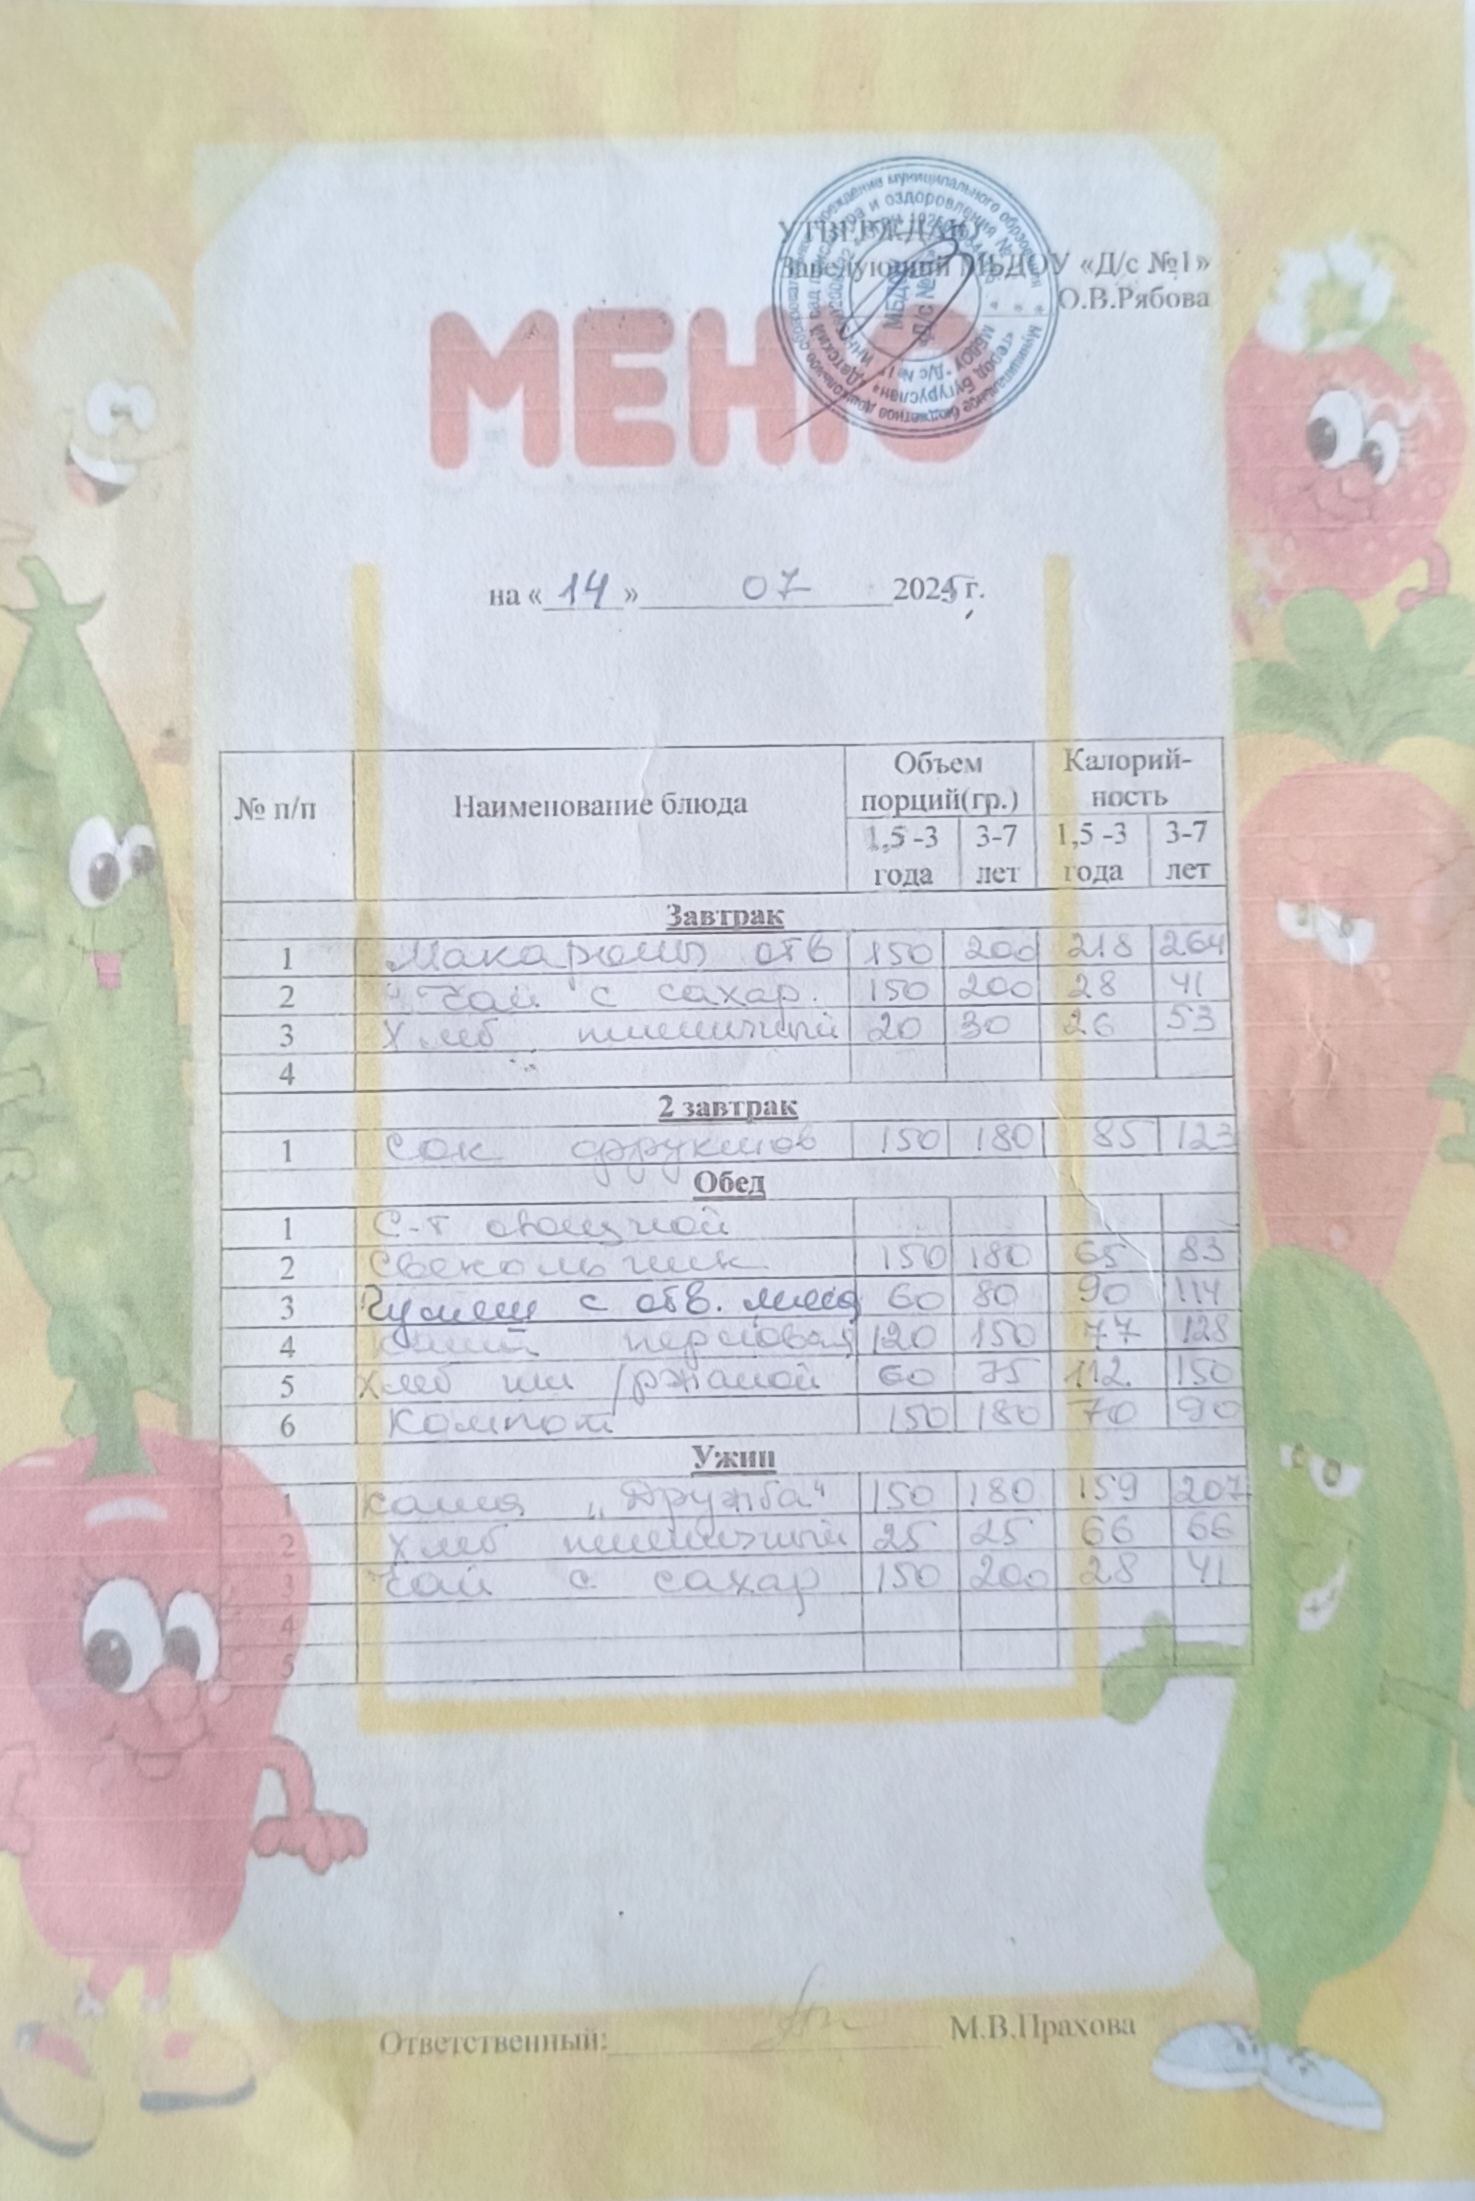 УТВЕРЖДАЮ
Заведующий МБДОУ «Д/с №1»
О.В.Рябова
МЕНЮ
на « 14 » 07 2025 г.
№ п/п Наименование блюда Объем порций(гр.) Калорий-ность
1,5 -3 года 3-7 лет 1,5 -3 года 3-7 лет
Завтрак
1 Макароны отв 150 200 218 264
2 Чай с сахар. 150 200 28 41
3 Хлеб пшеничный 20 30 26 53
4
2 завтрак
1 Сок фруктов 150 180 85 123
Обед
1 С-т овощной
2 Свекольник 150 180 65 83
3 Гуляш с отв. мяса 60 80 90 114
4 перловая 120 150 77 128
5 Хлеб пш /ржаной 60 75 112 150
6 Компот 150 180 70 90
Ужин
1 Каша „Дружба“ 150 180 159 207
2 Хлеб пшеничный 25 25 66 66
3 Чай с сахар 150 200 28 41
4
5
Ответственный: М.В.Прахова